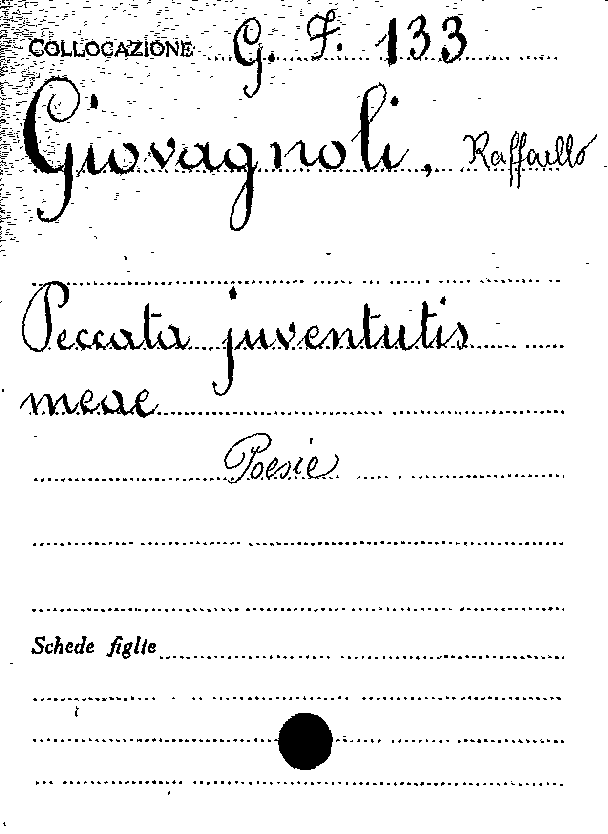 COLLOCAZIONE G. F. 133
Giovagnoli, Raffaello
Peccata juventutis
meae
Poesie
Schede figlie